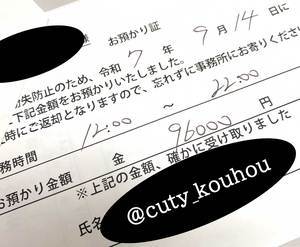 お預かり証
失防止のため、令和 7 年 9 月 14 日に
下記金額をお預かりいたしました。
時にご返却となりますので、忘れずに事務所にお寄りくださ
務時間 12:00 ～ 22:00
お預かり金額 金 96000 円
※上記の金額、確かに受け取りました
氏名
@cuty_kouhou